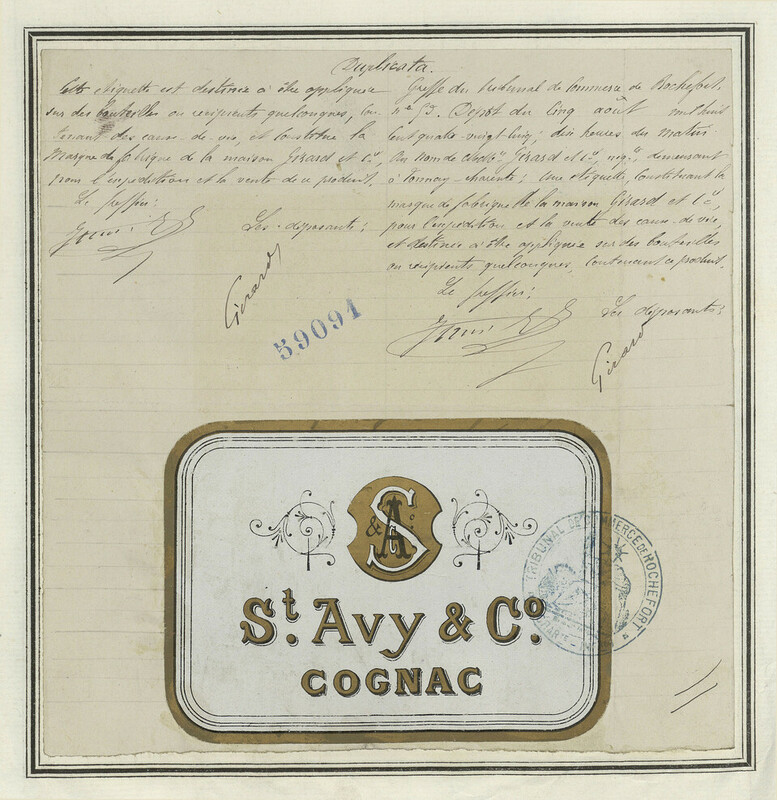 Duplicata.
Cette étiquette est destinée à être appliquée
sur des bouteilles ou récipients quelconques, con-
tenant des eaux-de-vie, et constitue la
Marque de fabrique de la maison Girard et Cie,
pour l'expédition et la vente de ce produit.
Le greffier:
Les déposants:
Girard
Greffe du tribunal de Commerce de Rochefort.
Dépôt du Cinq août mil huit
cent quatre-vingt-cinq; dix heures du matin.
Au Nom de Girard et Cie, négts, demeurant
à Tonnay-Charente; Une étiquette, constituant la
marque de fabrique de la maison Girard et Cie,
pour l'expédition et la vente des eaux-de-vie,
et destinée à être appliquée sur des bouteilles
ou récipients quelconques, contenant ce produit.
Le greffier:
Les déposants:
Girard
59091
S A & Co
St. Avy & Co.
COGNAC
TRIBUNAL DE COMMERCE DE ROCHEFORT